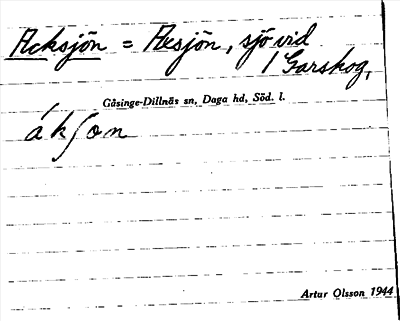 Acksjön = Aksjön, sjö vid
/ Garskog,
Gåsinge-Dillnäs sn, Daga hd, Söd. l.
ákʃon
Artur Olsson 1944